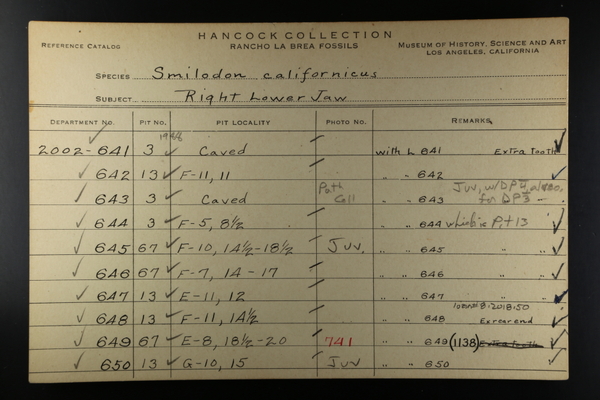 HANCOCK COLLECTION
REFERENCE CATALOG RANCHO LA BREA FOSSILS MUSEUM OF HISTORY, SCIENCE AND ART
LOS ANGELES, CALIFORNIA
SPECIES Smilodon californicus
SUBJECT Right Lower Jaw
DEPARTMENT NO. PIT NO. PIT LOCALITY PHOTO NO. REMARKS
2002-641 3 Caved with L 641 Extra tooth
642 13 F-11, 11 " " 642
643 3 Caved Path Coll " " 643 Juv, w/DP4, alveo. for DP3
644 3 F-5, 8½ " " 644 which is Pit 13
645 67 F-10, 14½-18½ Juv. " " 645 " "
646 67 F-7, 14-17 " " 646 " "
647 13 E-11, 12 " " 647 " "
648 13 F-11, 14½ " " 648
649 67 E-8, 18½-20 741 " " 649 (1138) Extra Tooth
650 13 G-10, 15 Juv " " 650